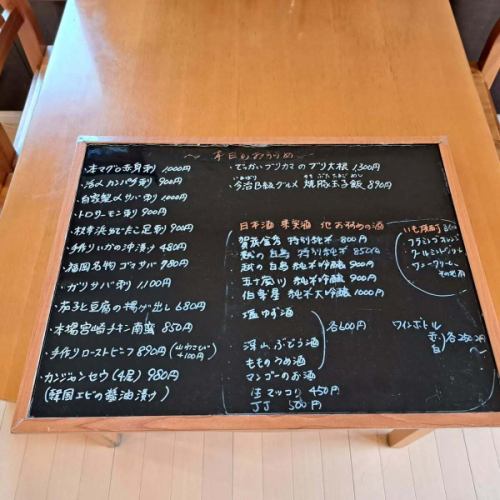 ～ 本日のおすすめ ～
・本マグロ赤身刺 1000円
・活〆カンパチ刺 900円
・自家製〆サバ刺 1000円
・トロサーモン刺 900円
・枝幸浜ゆでたこ足刺 900円
・手作りいかの沖漬け 480円
・福岡名物 ゴマサバ 980円
・ガリサバ刺 1100円
・茄子と豆腐の揚げ出し 680円
・本場宮崎チキン南蛮 850円
・手作りローストビーフ 890円 (山わさび +100円)
・カンジャンセウ (4尾) 980円
(韓国エビの醤油漬け)
・でっかいブリカマのブリ大根 1300円
・今治B級グルメ 焼豚玉子飯 890円
日本酒 果実酒 他 おすすめの酒
賀茂金秀 特別純米 800円
越の白鳥 特別純米 850円
越の白鳥 純米吟醸 900円
五十嵐川 純米吟醸 900円
伯耆星 純米大吟醸 1000円
塩ゆず酒
深山ぶどう酒
もものうめ酒
マンゴーのお酒
各600円
生マッコリ 450円
JJ 500円
いも焼酎
フラミンゴオレンジ
クールミントグリーン
ワインボトル
赤
白